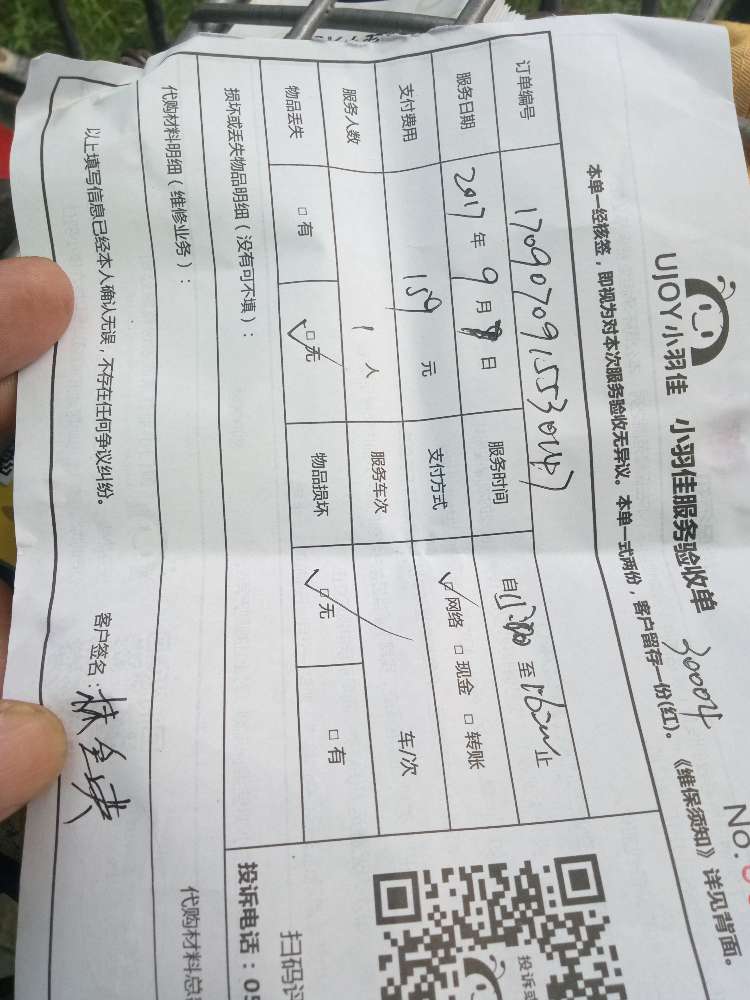 No.
UJOY小羽佳 小羽佳服务验收单 30004
本单一经核签，即视为对本次服务验收无异议。本单一式两份，客户留存一份(红)。《维保须知》详见背面。
订单编号
服务日期 2017年9月8日 服务时间 自 至 止
支付费用 159元 支付方式 ☑网络 □现金 □转账
服务人数 1人 服务车次 车/次
物品丢失 □有 ☑无 物品损坏 ☑无 □有
损坏或丢失物品明细（没有可不填）：
代购材料明细（维修业务）：
代购材料总
以上填写信息已经本人确认无误，不存在任何争议纠纷。 客户签名：
投诉或
扫码评
投诉电话：05